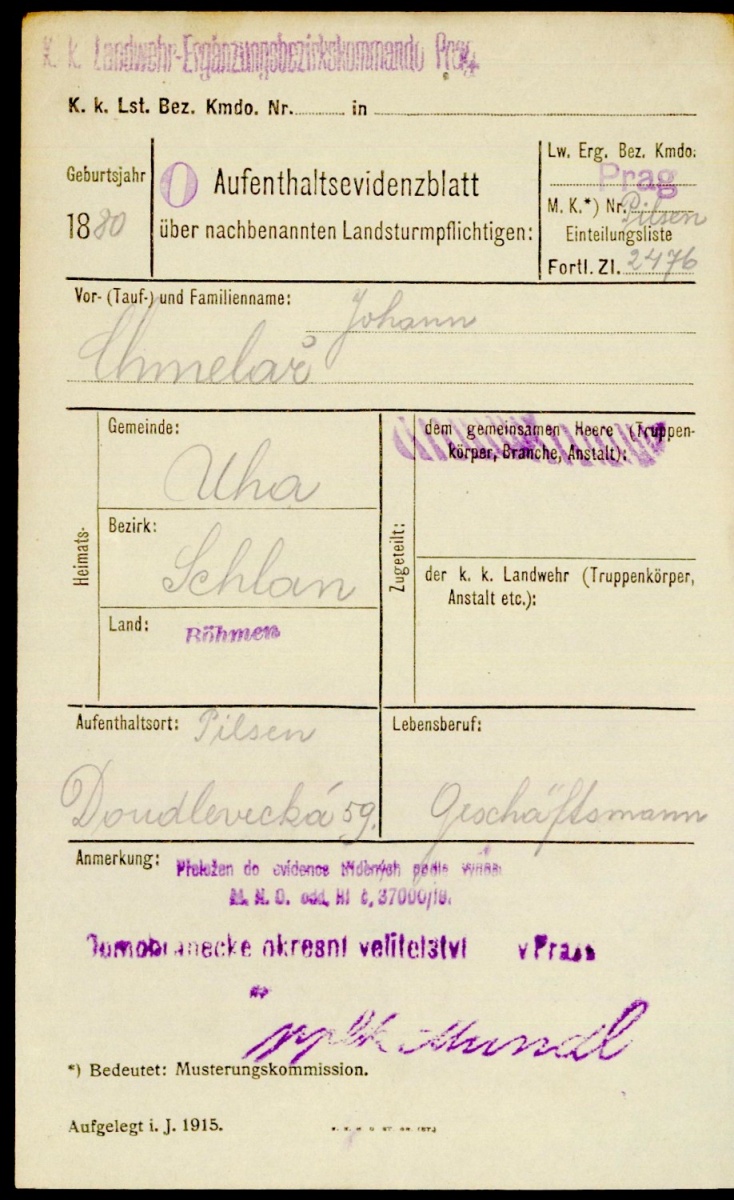 K. k. Landwehr-Ergänzungsbezirkskommando Prag
K. k. Lst. Bez. Kmdo. Nr. in
Geburtsjahr
1880
O Aufenthaltsevidenzblatt
über nachbenannten Landsturmpflichtigen:
Lw. Erg. Bez. Kmdo.
Prag
M. K.*) Nr. Pilsen
Einteilungsliste
Fortl. Zl. 2476
Vor- (Tauf-) und Familienname: Johann
Chmelař
Heimats-
Gemeinde:
Uha
Bezirk:
Schlan
Land: Böhmen
Zugeteilt:
dem gemeinsamen Heere (Truppen-
körper, Branche, Anstalt):
der k. k. Landwehr (Truppenkörper,
Anstalt etc.):
Aufenthaltsort: Pilsen
Doudlevecká 59.
Lebensberuf:
Geschäftsmann
Anmerkung:
Přeložen do evidence tříděných podle výnos
M. N. O. odd. HI č. 37000/19.
Domobranecké okresní velitelství v Praze
*) Bedeutet: Musterungskommission.
Aufgelegt i. J. 1915.